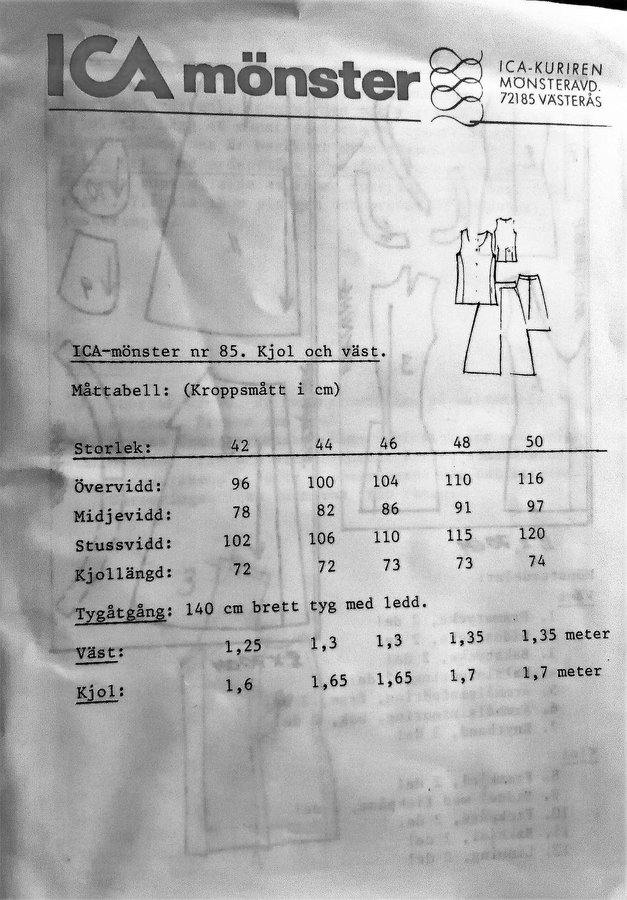 ICA mönster
ICA-KURIREN
MÖNSTERAVD.
72185 VÄSTERÅS
ICA-mönster nr 85. Kjol och väst.
Måttabell: (Kroppsmått i cm)
Storlek: 42 44 46 48 50
Övervidd: 96 100 104 110 116
Midjevidd: 78 82 86 91 97
Stussvidd: 102 106 110 115 120
Kjollängd: 72 72 73 73 74
Tygåtgång: 140 cm brett tyg med ledd.
Väst: 1,25 1,3 1,3 1,35 1,35 meter
Kjol: 1,6 1,65 1,65 1,7 1,7 meter